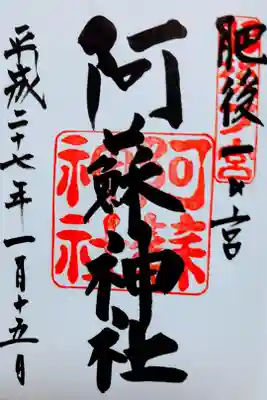 肥後一宮
阿蘇神社
阿蘇神社
平成二十七年一月十五日